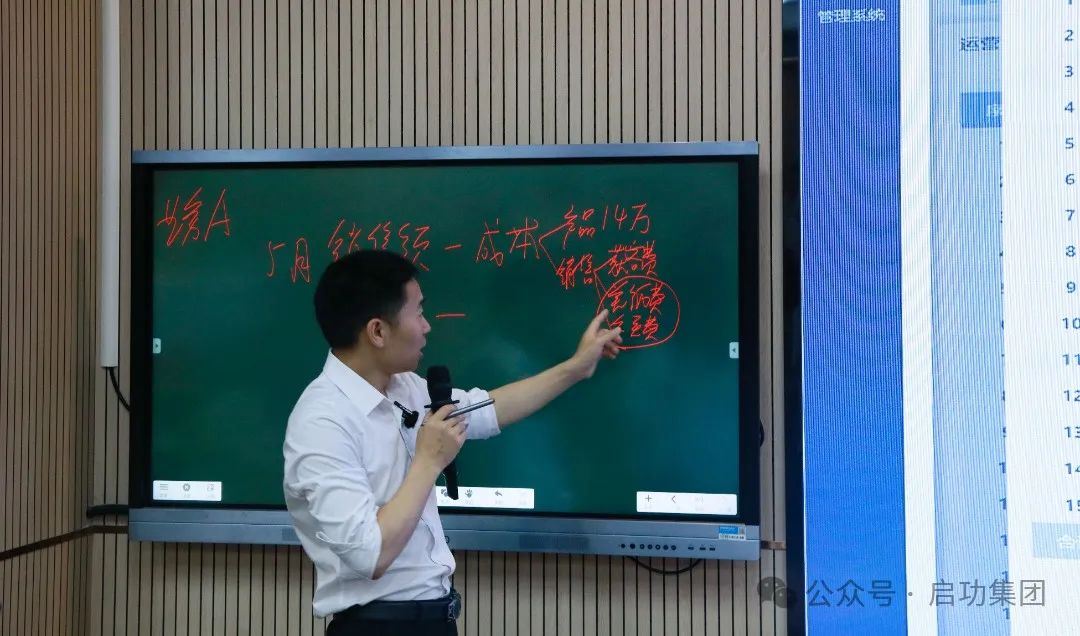 A
5月 销售额 - 成本
产品14万
销售 获客费
-
管理系统
运营
1
2
3
4
5
6
7
8
9
10
11
12
13
14
15
公众号 · 启功集团